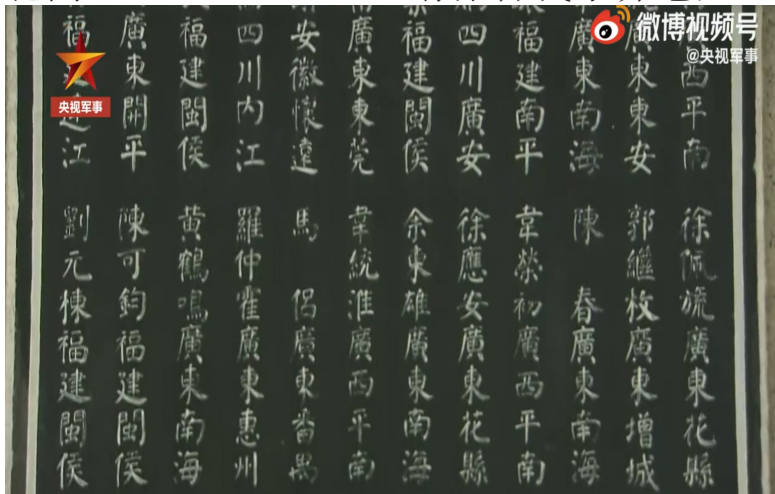 微博视频号
@央视军事
央视军事
西平南
廣東東安
廣東南海
福建南平
四川廣安
福建閩侯
廣東東莞
安徽懷遠
四川內江
福建閩侯
廣東開平
福 江
徐佩旒廣東花縣
郭繼枚廣東增城
陳 春廣東南海
韋榮初廣西平南
徐應安廣東花縣
余東雄廣東南海
韋統淮廣西平南
馬 侶廣東番禺
羅仲霍廣東惠州
黃鶴鳴廣東南海
陳可鈞福建閩侯
劉元棟福建閩侯